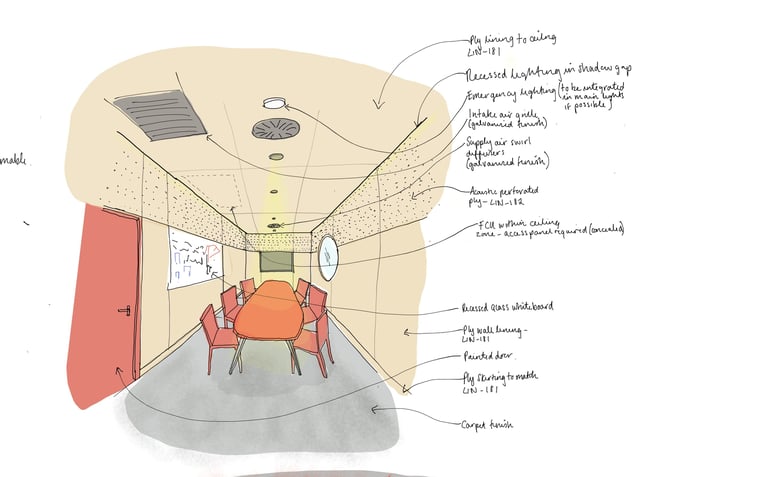 Ply lining to ceiling
LIN-181
Recessed lighting in shadow gap
Emergency lighting (to be integrated
in main lights
if possible)
Intake air grille
(galvanised finish)
Supply air swirl
diffusers
(galvanised finish)
mable.
Acoustic perforated
ply - LIN-182
FCU within ceiling
zone - access panel required (concealed)
Recessed glass whiteboard
Ply wall lining -
LIN-181
Painted door.
Ply skirting to match
LIN-181
Carpet finish